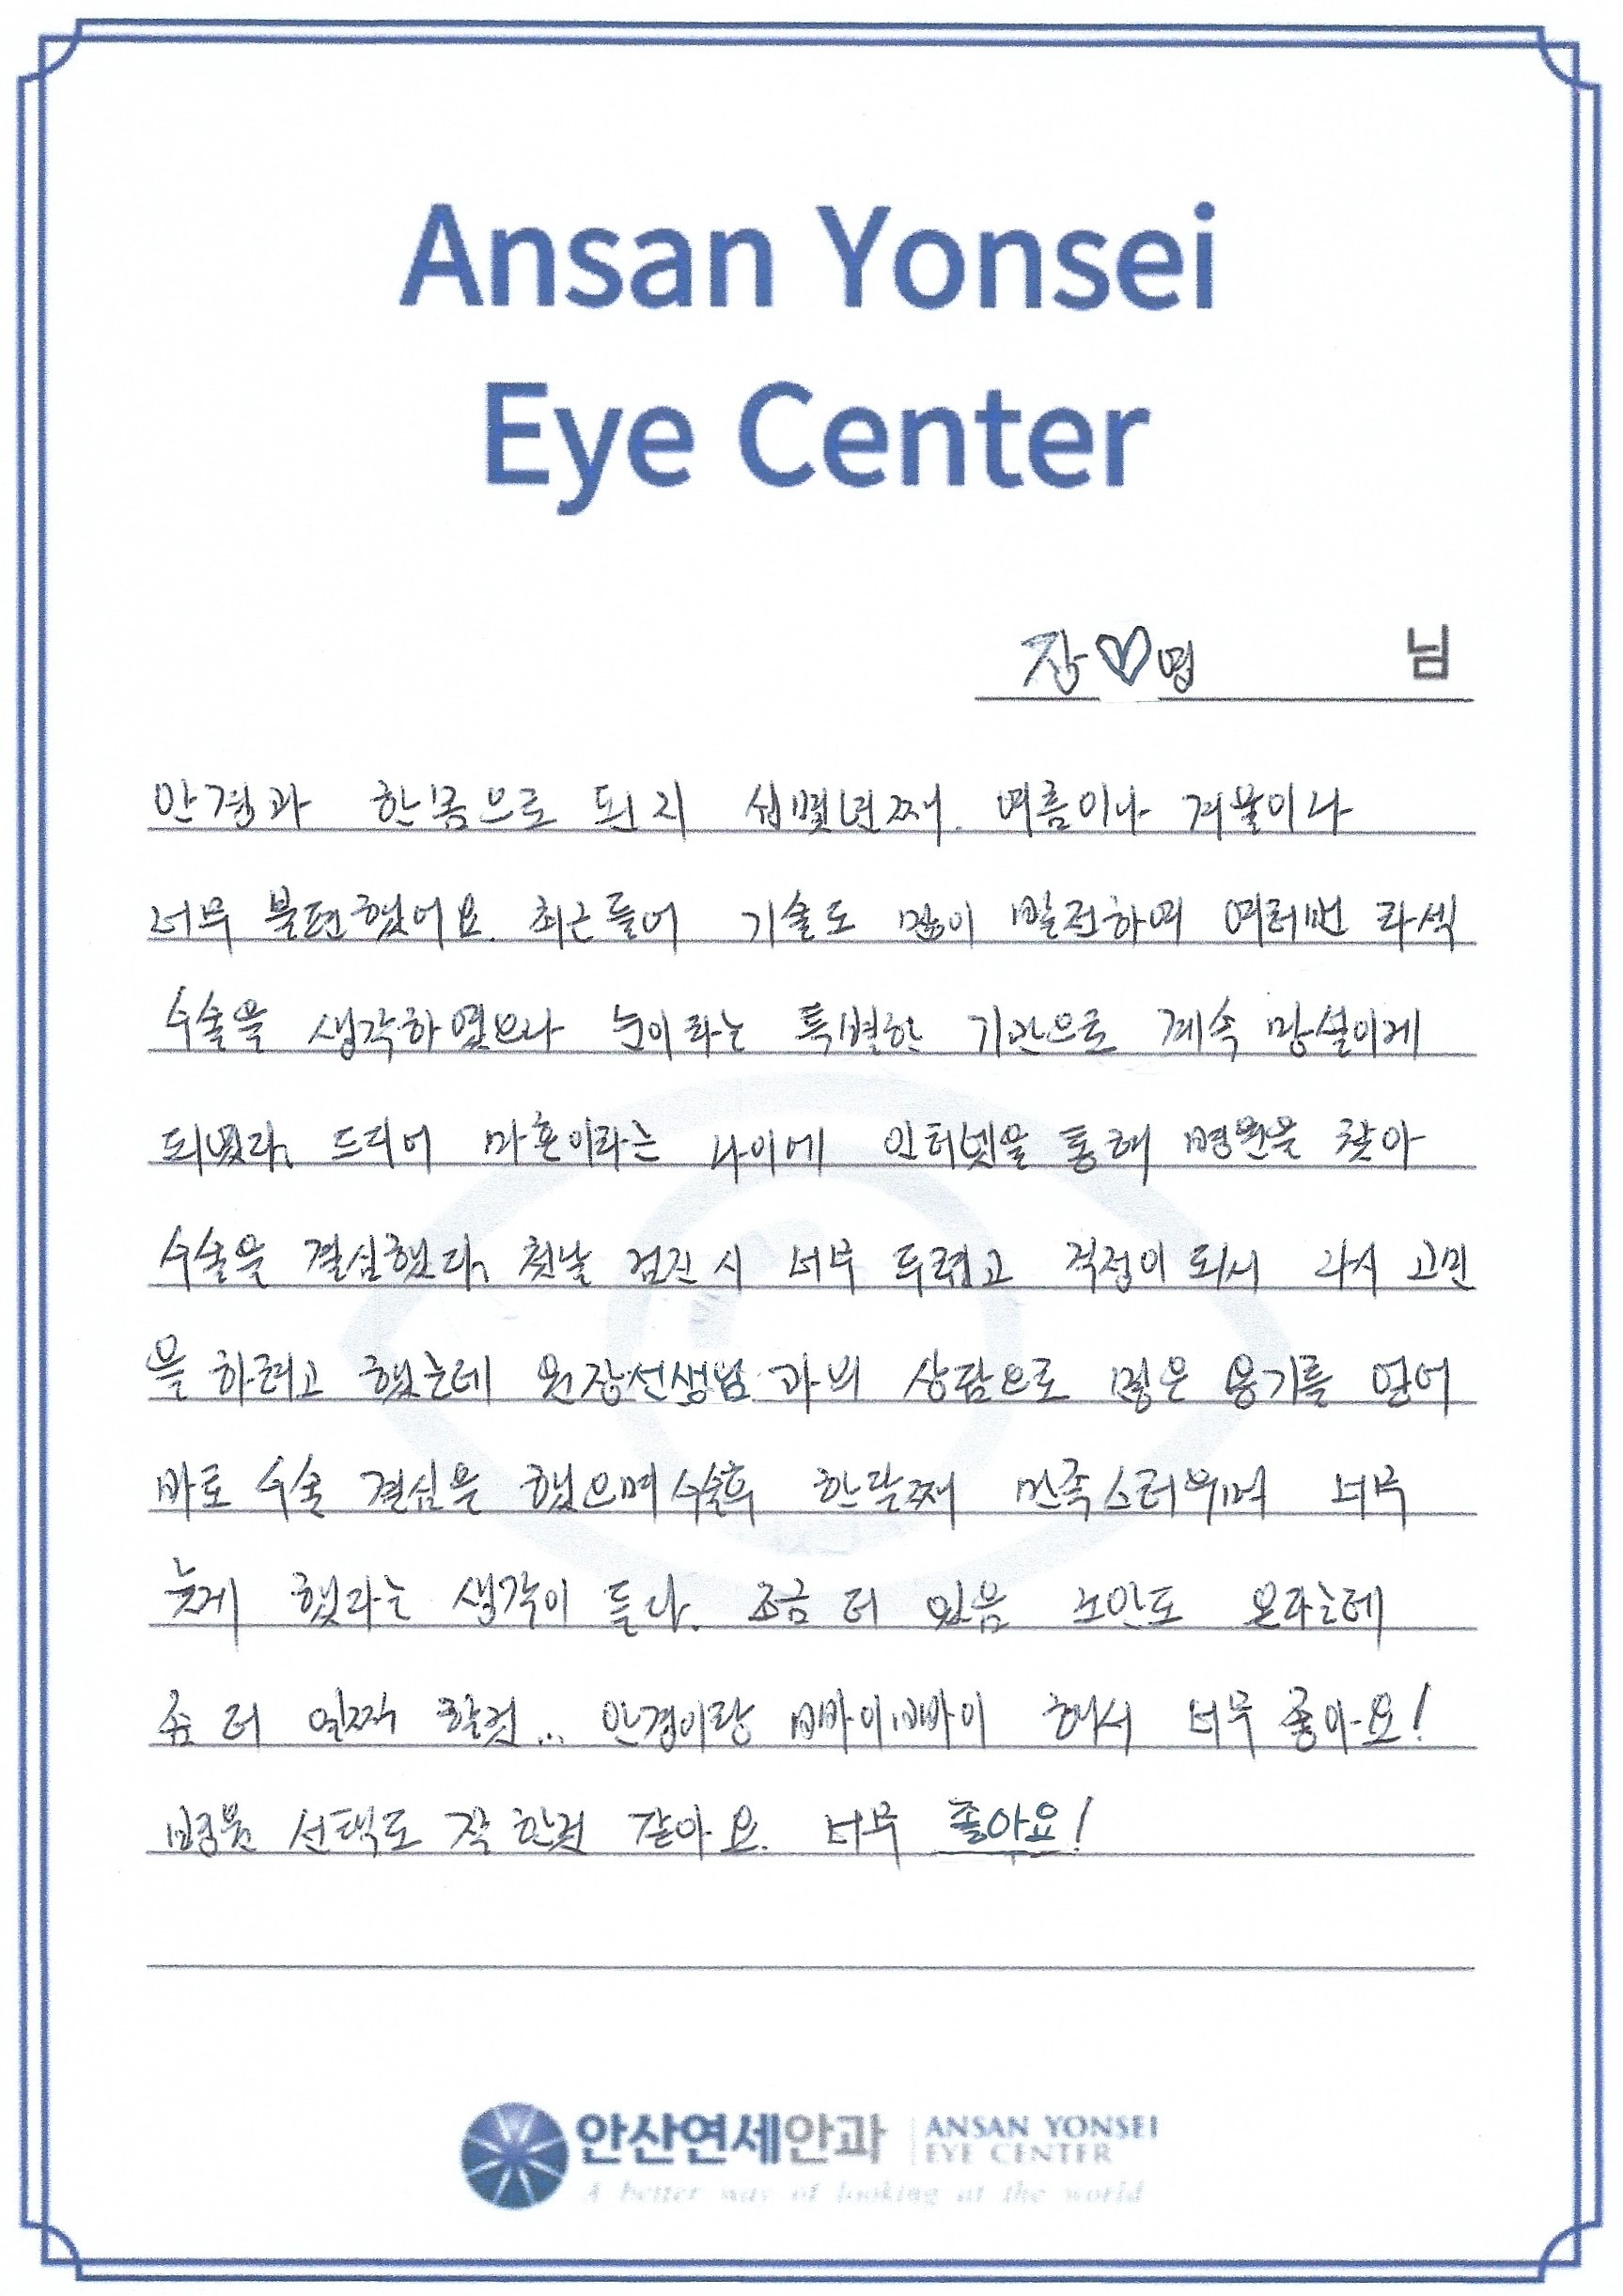 Ansan Yonsei
Eye Center
장♡명 님
안경과 한몸으로 된지 십몇년째. 여름이나 겨울이나
너무 불편했어요. 최근들어 기술도 많이 발전하며 여러번 라섹
수술을 생각하였으나 눈이라는 특별한 기관으로 계속 망설이게
되었다. 드디어 마흔이라는 나이에 인터넷을 통해 병원을 찾아
수술을 결심했다. 첫날 검진시 너무 두렵고 걱정이 되서 다시 고민
을 하려고 했는데 원장선생님과의 상담으로 많은 용기를 얻어
바로 수술 결심을 했으며 수술후 한달째 만족스러우며 너무
늦게 했다는 생각이 든다. 조금 더 있음 노안도 온다는데
좀 더 일찍 할걸... 안경이랑 빠이빠이 해서 너무 좋아요!
병원 선택도 잘 한것 같아요. 너무 좋아요!
안산연세안과 ANSAN YONSEI
EYE CENTER
A better way of looking at the world